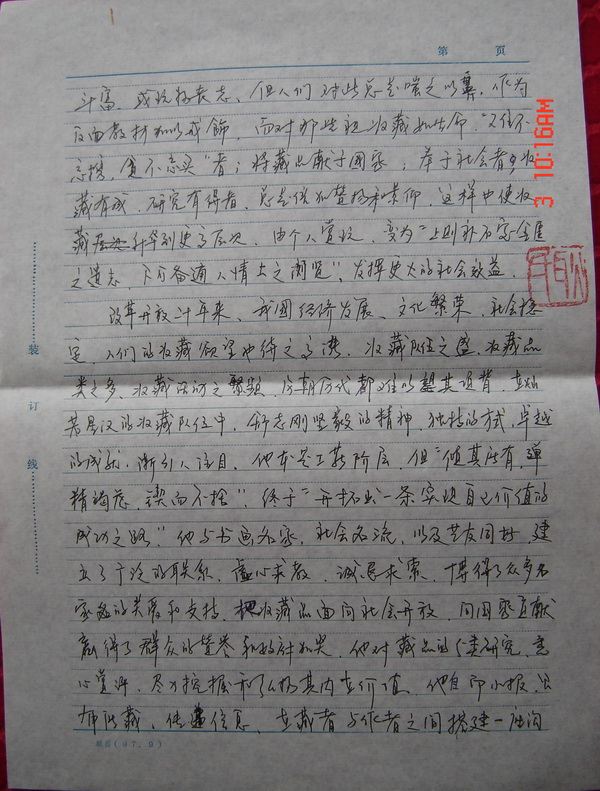 第 页
斗富，或玩物丧志，但人们对此总是嗤之以鼻，作为
反面教材加以戒饬，而对那些视收藏如生命，
"者；将藏品献于国家，
藏有成，研究有得者，总是倍加赞扬和景仰，这样由使收
藏升华到更高层次，由个人赏玩，变为"上则补石室金匮
之遗志，下可备通人情士之浏览"，发挥更大的社会效益。
改革开放廿年来，我国经济发展，文化繁荣，社会稳
定，人们的收藏欲望也待之高涨，收藏队伍之盛，收藏品
类之多，收藏活动之繁频，历朝历代都难以望其项背，在灿
若星汉的收藏队伍中，舒志刚坚毅的精神，独特的方式，卓越
的成就，渐引人注目。他本是工薪阶层，但"倾其所有，殚
精竭虑，锲而不舍"，终于"开拓出一条实现自己价值的
成功之路"。他与书画名家，社会名流，以及藏友同好，建
立了广泛的联系，虚心求教，诚恳求索，博得了众多名
家的关爱和支持，把收藏品面向社会开放，向国家贡献
赢得了群众的赞誉和政府如奖。他对藏品的分类研究，悉
心赏评，尽力挖掘和弘扬其内在价值。他自印小报，公
布所藏，传递信息，在藏者与作者之间搭建一座沟
装
订
线
3 10:16AM